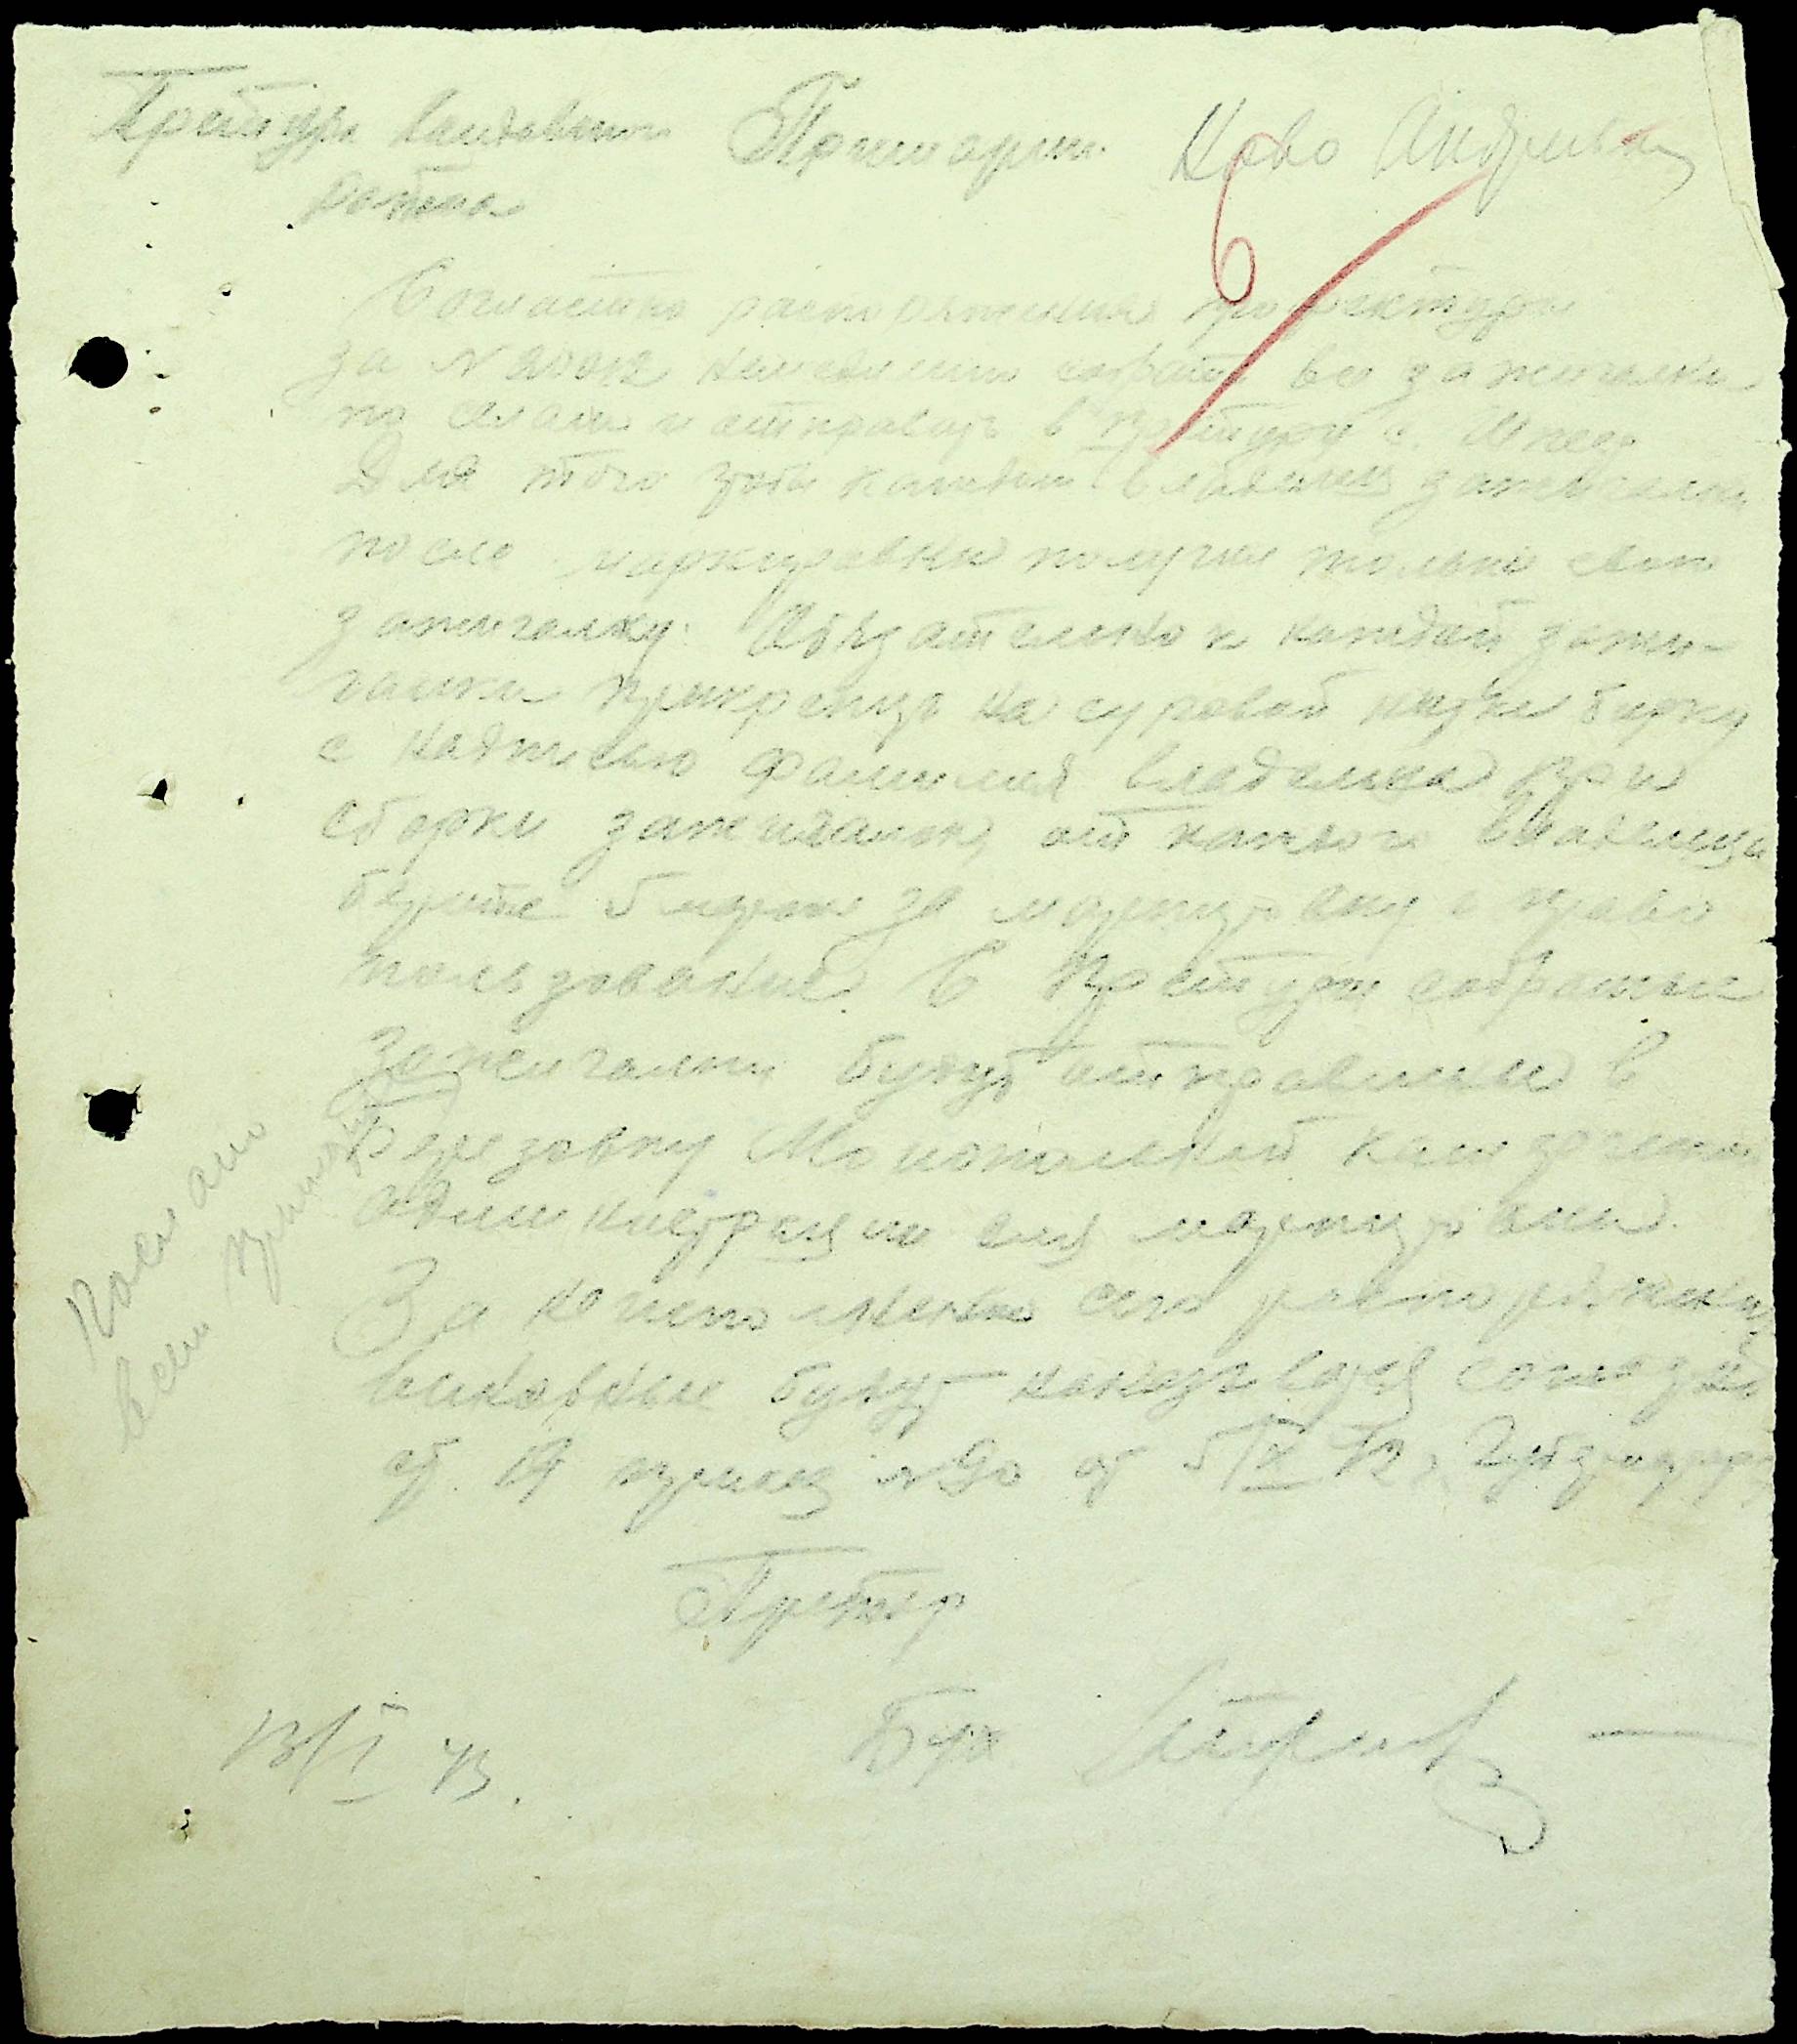 Претура Ландавского Примарии Ново Андреевка
района
6
Согласно распоряжения префектуры
за № 20012 собрать все зажигалки
по селам и отправить в претуру с.
Для того чтобы каждый владелец зажигалки
после маркировки получил только свою
зажигалку. Обязательно к каждой зажи-
галки прикрепить на суровой нитке бирку
с надписью фамилия владельца при
сборки зажигалки от каждого владельца
берите 5 марок за маркировку и право
пользования. В Претуре собранные
зажигалки будут отправлены в
Березовку Монопольной
администрации для маркировки.
За неисполнение сего распоряжения
виновные будут наказываться согласно
ст. 19 приказ № 90 от 5/IX 42 г. Губернатора
Претор
13/I 43.
Бух.
Послано
всем примар.